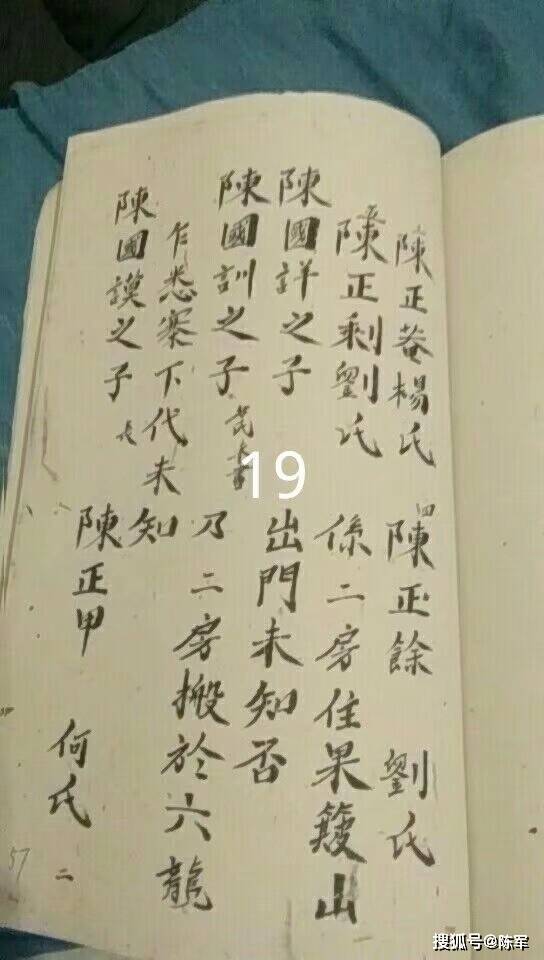 三 陳正菴楊氏 四 陳正餘 劉氏
五 陳正剩劉氏
陳國詳之子 係二房住果簸山
陳國訓之子 出門未知否
乃二房搬於六龍
乍悉寨下代未知
陳國謨之子 長 陳正甲 何氏 二
19
57
搜狐号@陈军